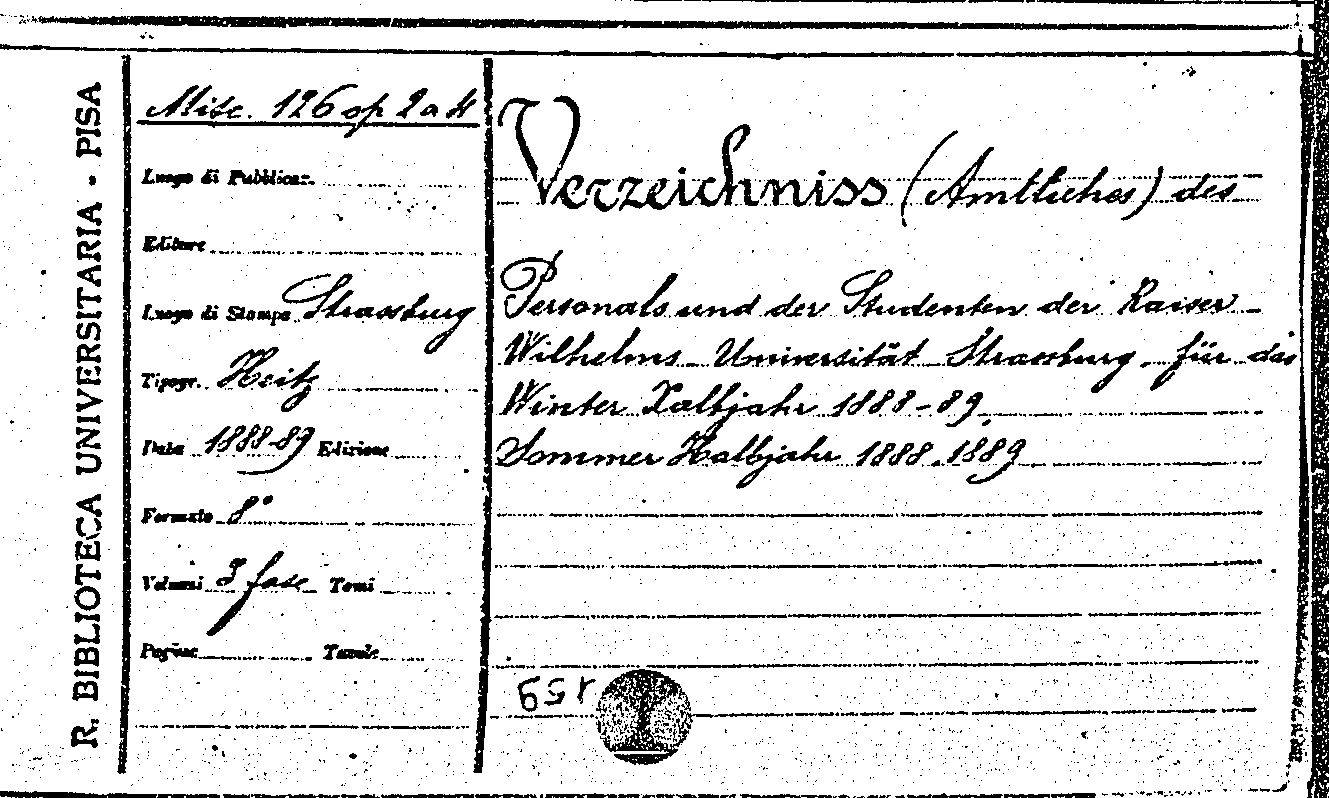 R. BIBLIOTECA UNIVERSITARIA - PISA
Misc. 126 op 2 a 4
Luogo di Pubblicaz.
Editore
Luogo di Stampa Strassburg
Tipogr. Heitz
Data 1888-89 Edizione
Formato 8°
Volumi 3 fasc Tomi
Pagine Tavole
Verzeichniss (Amtliches) des
Personals und der Studenten der Kaiser
Wilhelms Universität Strassburg für das
Winter Halbjahr 1888-89
Sommer Halbjahr 1888.1889
159